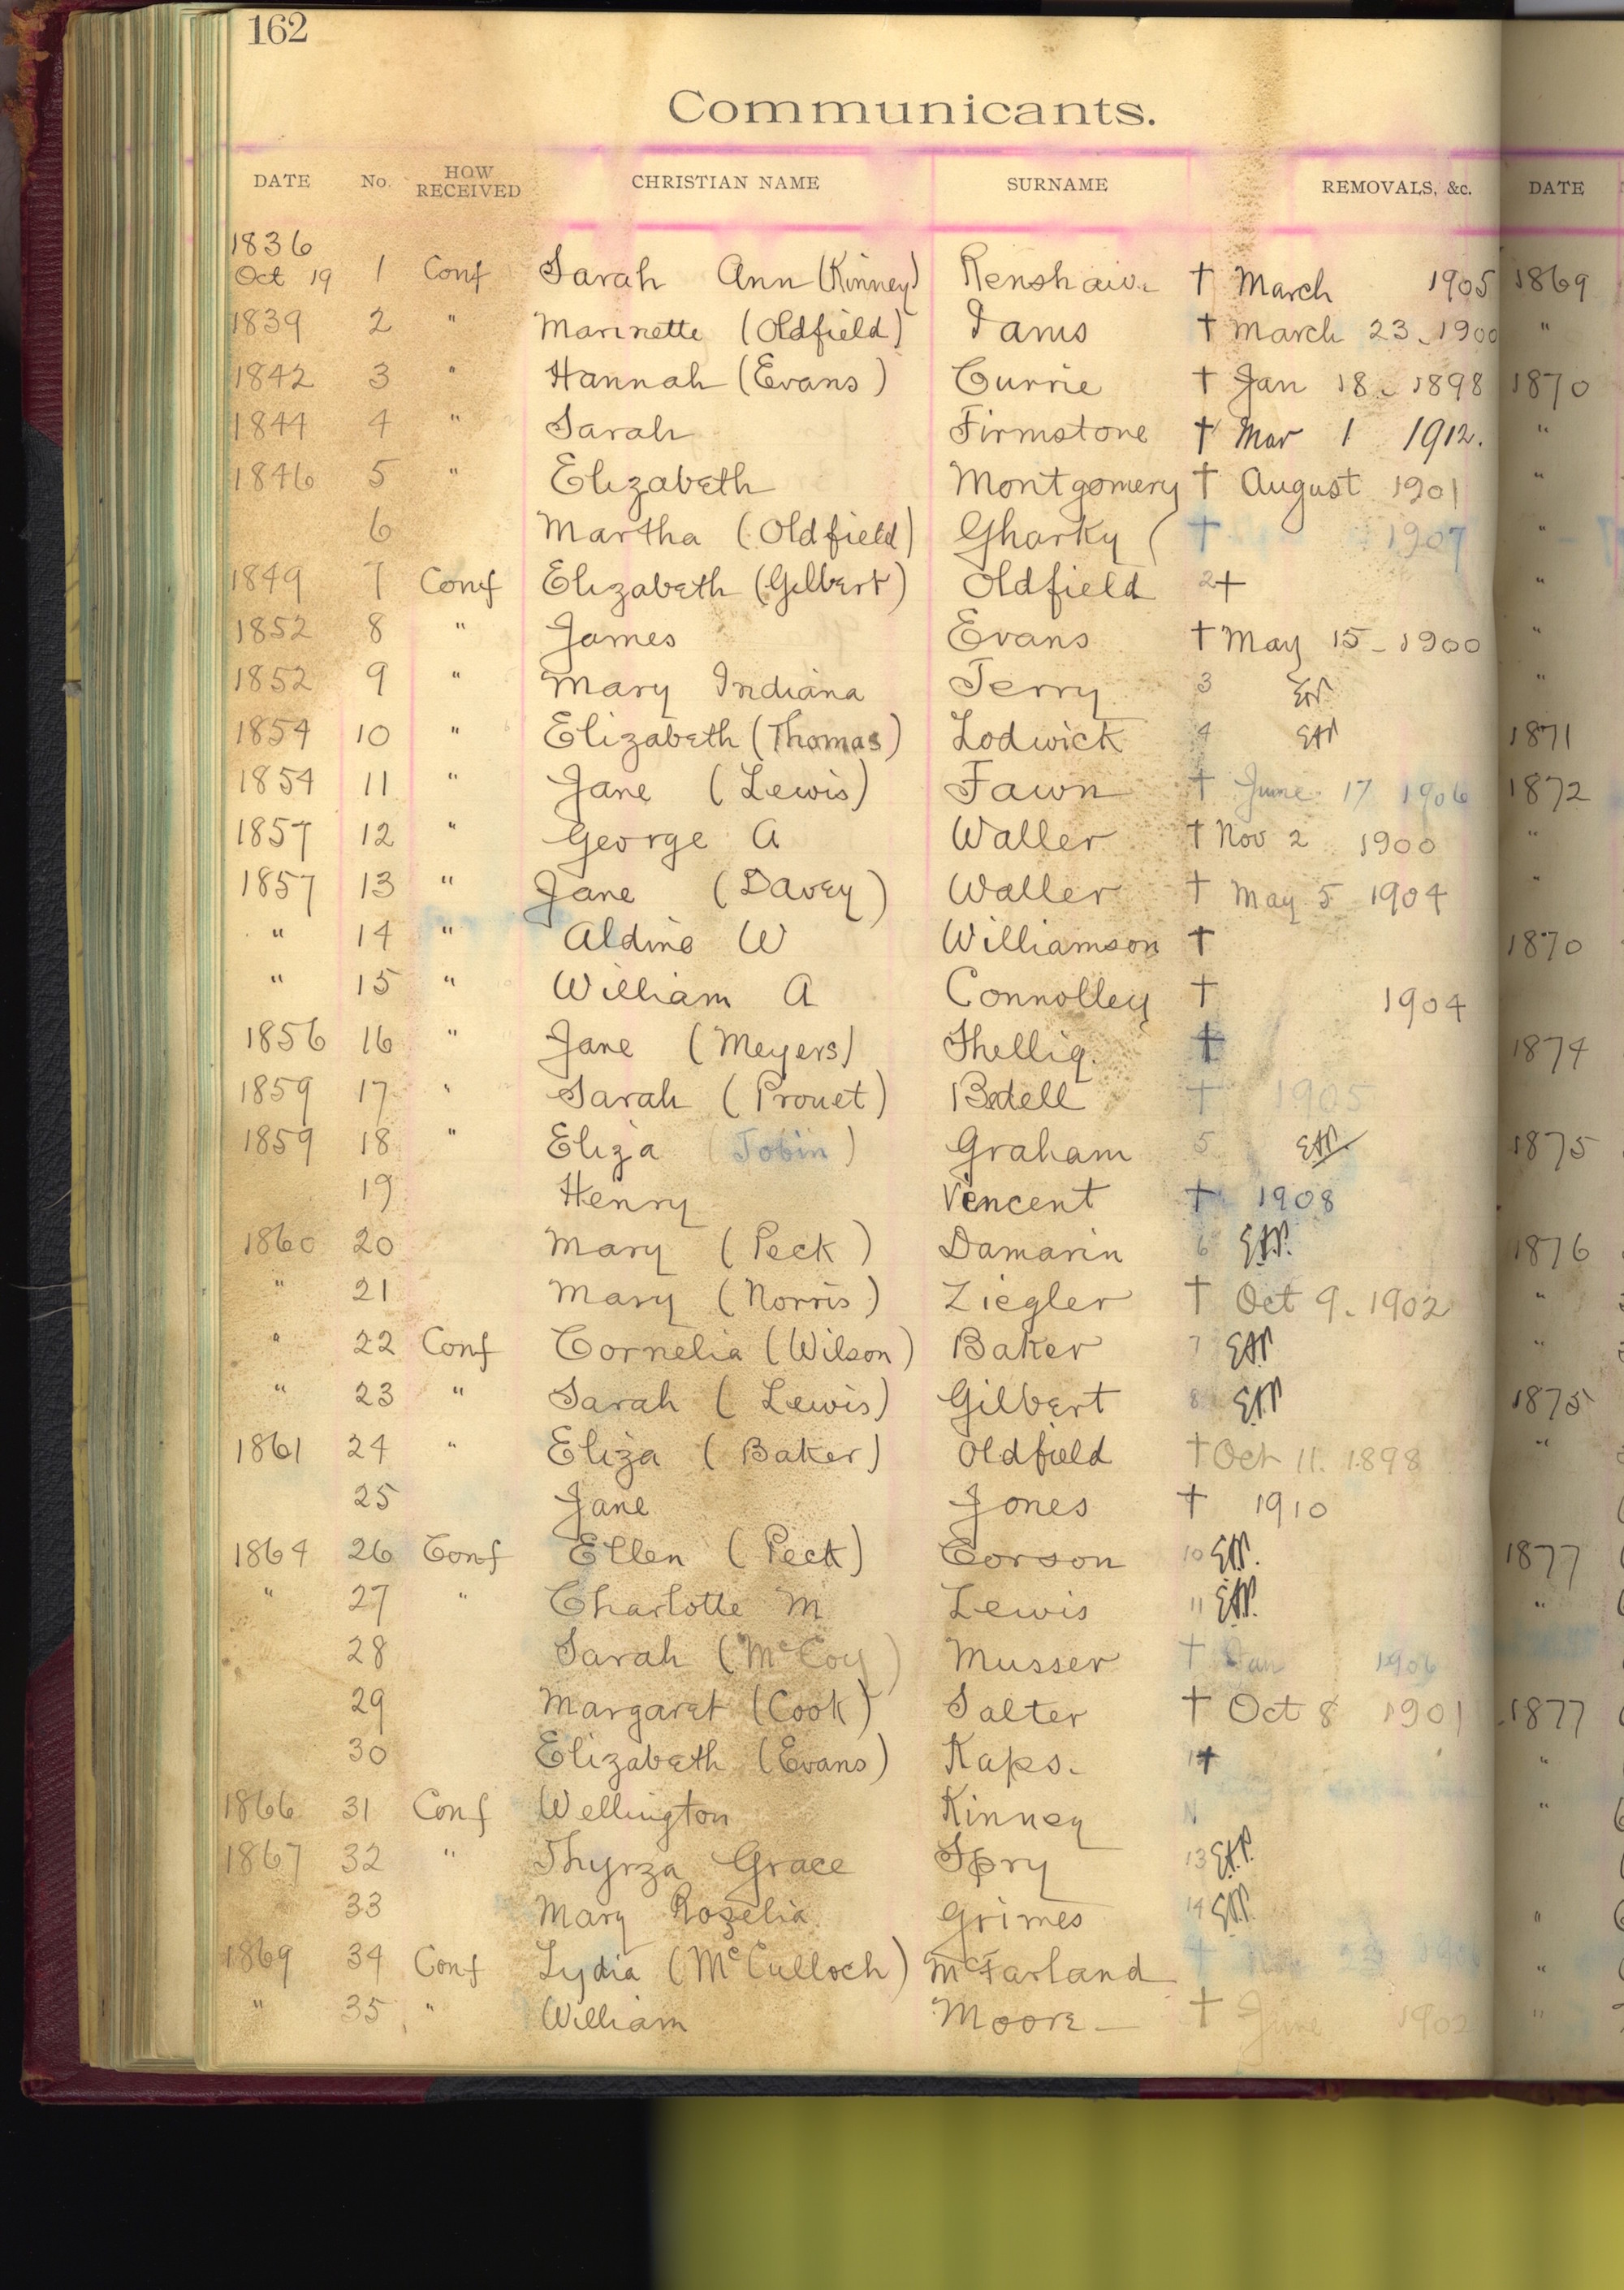 162
Communicants.
DATE No. HOW RECEIVED CHRISTIAN NAME SURNAME REMOVALS, &c. DATE
1836
Oct 19 1 Conf Sarah Ann (Kinney) Renshaw † March 1905 1869
1839 2 " Marinette (Oldfield) † March 23. 1900 "
1842 3 " Hannah (Evans) Currie † Jan 18. 1898 1870
1844 4 " Sarah Firmstone † Mar 1 1912. "
1846 5 " Elizabeth Montgomery † August 1901 "
6 Martha (Oldfield) Gharky ( † 1907 "
1849 7 Conf Elizabeth (Gilbert) Oldfield 2 † "
1852 8 " James Evans † May 15 - 1900 "
1852 9 " Mary Indiana Terry 3 "
1854 10 " Elizabeth (Thomas) Lodwick 4 1871
1854 11 " Jane (Lewis) Fawn † June 17 1906 1872
1857 12 " George A Waller † Nov 2 1900 "
1857 13 " Jane (Davey) Waller † May 5 1904 "
" 14 " Aldine W Williamson † 1870
" 15 " William A Connolley † 1904
1856 16 " Jane (Meyers) † 1874
1859 17 " Sarah (Prouet) Bedell † 1905
1859 18 " Eliza (Tobin) Graham 5 1875
19 Henry Vencent † 1908
1860 20 Mary (Peck) Damarin 6 1876
" 21 Mary (Norris) Ziegler † Oct 9. 1902 "
" 22 Conf Cornelia (Wilson) Baker 7 "
" 23 " Sarah (Lewis) Gilbert 8 1875
1861 24 " Eliza (Baker) Oldfield † Oct 11. 1898 "
25 Jane Jones † 1910
1864 26 Conf Ellen (Peck) Corson 10 1877
" 27 " Charlotte M Lewis 11 "
28 Sarah (McCoy) Musser † Jan 1906
29 Margaret (Cook) Salter † Oct 8 1901 1877
30 Elizabeth (Evans) Kaps. † "
1866 31 Conf Wellington Kinney "
1867 32 " Thyrza Grace Spry 13
33 Mary Rozelia Grimes 14 "
1869 34 Conf Lydia (McCulloch) McFarland † "
" 35 " William Moore † June 1902 "